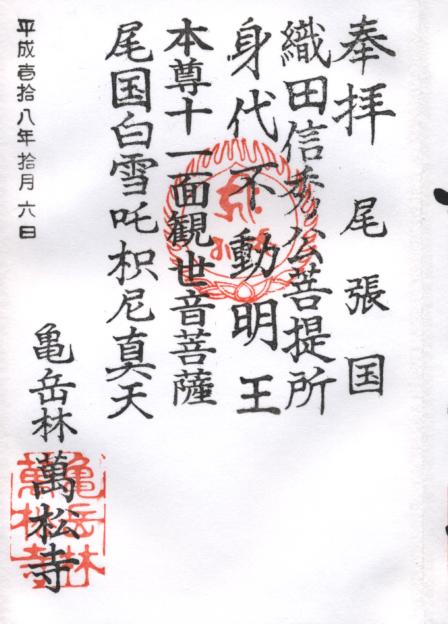 奉拝 尾張国
織田信秀公菩提所
身代不動明王
本尊十一面観世音菩薩
尾国白雪吒枳尼真天
平成壱拾八年拾月六日
亀岳林萬松寺
亀岳林
萬松寺